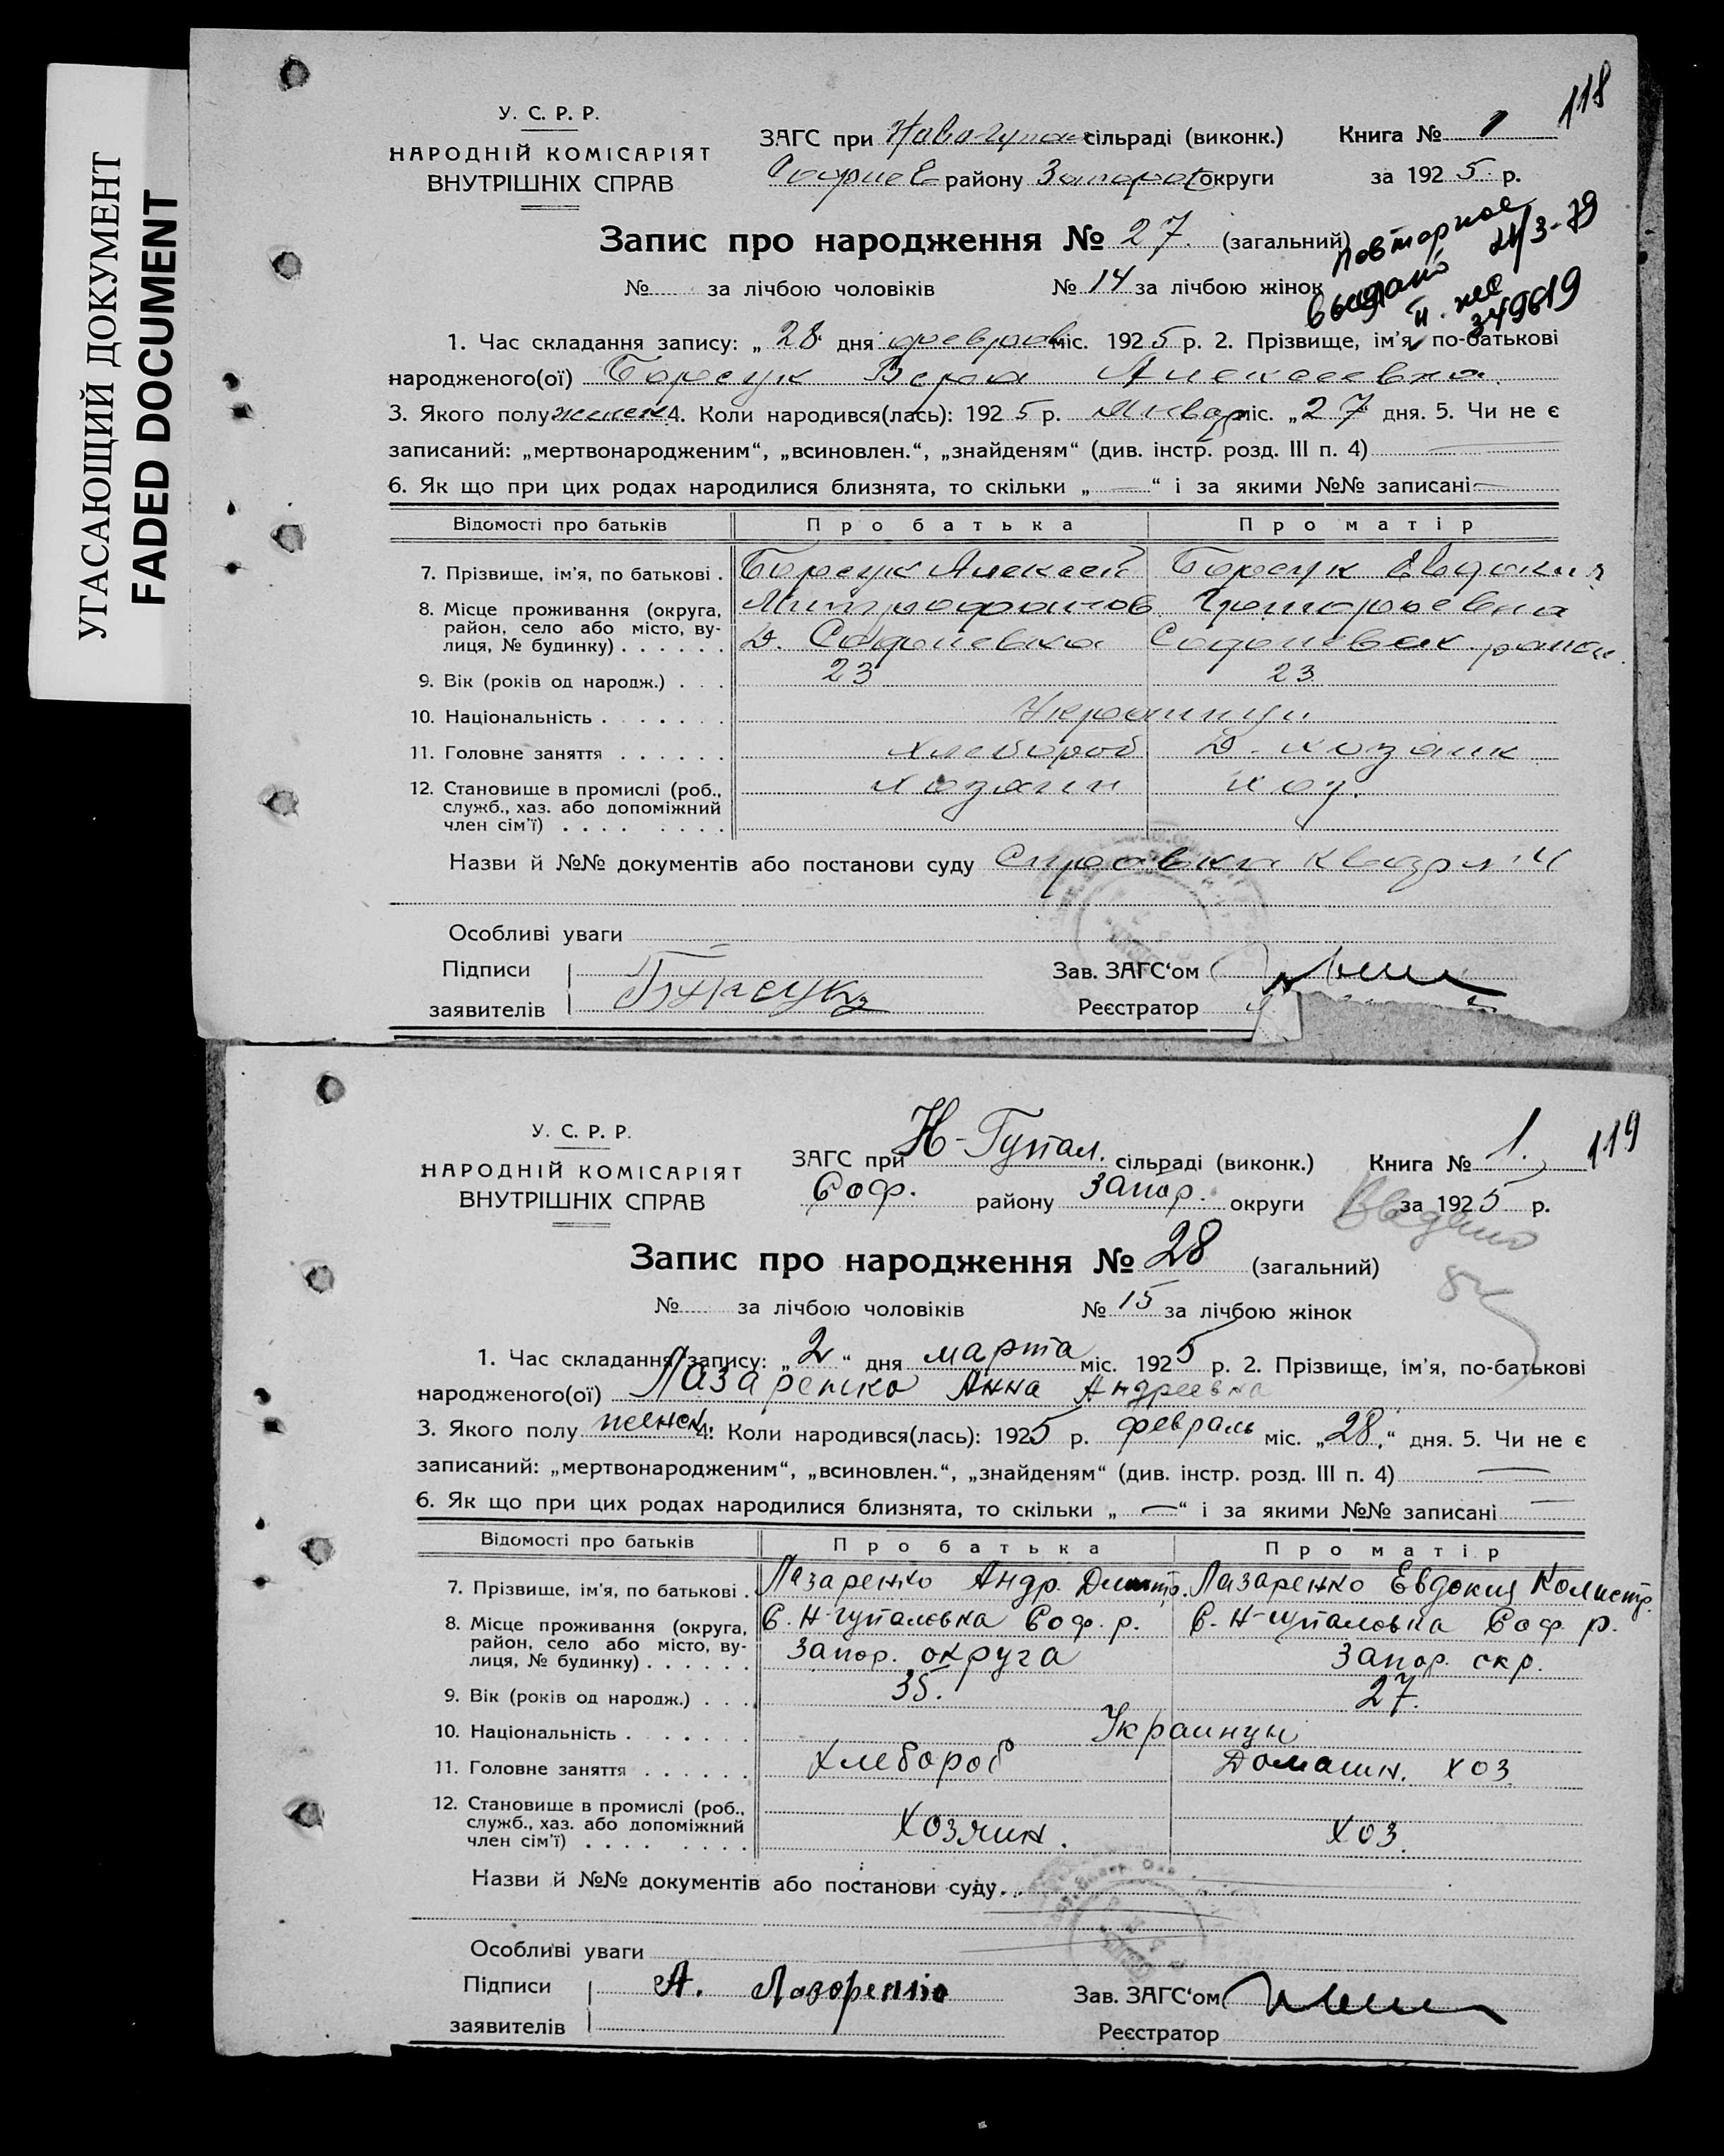 УГАСАЮЩИЙ ДОКУМЕНТ
FADED DOCUMENT
118
У. С. Р. Р.
НАРОДНІЙ КОМІСАРІЯТ
ВНУТРІШНІХ СПРАВ
ЗАГС при сільраді (виконк.) Книга № 1
району Запорож округи за 1925 р.
Запис про народження № 27. (загальний)
повторное
выдано 21/3-79
349619
№ за лічбою чоловіків № 14 за лічбою жінок
1. Час складання запису: „ 28 дня февраль міс. 1925 р. 2. Прізвище, ім'я, по-батькові
народженого(ої) Борсук Вера Алексеевна
3. Якого полу женск 4. Коли народився(лась): 1925 р. Январ міс. „27 дня. 5. Чи не є
записаний: „мертвонародженим“, „всиновлен.“, „знайденям“ (див. інстр. розд. III п. 4)
6. Як що при цих родах народилися близнята, то скільки „ — “ і за якими №№ записані —
Відомості про батьків Про батька Про матір
7. Прізвище, ім'я, по батькові . Борсук Алексей Борсук Евдокия
8. Місце проживання (округа, район, село або місто, вулиця, № будинку) . . . . . . Митрофанов Григорьевна
Д. Софиевка Софиевск. район
9. Вік (років од народж.) . . . 23 23
10. Національність . . . . . . . Украинцы
11. Головне заняття . . . . . . Хлебороб Д. хозяик
12. Становище в промислі (роб., служб., хаз. або допоміжний член сім'ї) . . . . . . . . Хозяин Хоз.
Назви й №№ документів або постанови суду Справка
Особливі уваги
Підписи заявителів Борсукъ
Зав. ЗАГС‘ом
Реєстратор
119
У. С. Р. Р.
НАРОДНІЙ КОМІСАРІЯТ
ВНУТРІШНІХ СПРАВ
ЗАГС при Н-Гупал. сільраді (виконк.) Книга № 1.
Соф. району Запор. округи за 1925 р.
Запис про народження № 28 (загальний)
№ за лічбою чоловіків № 15 за лічбою жінок
1. Час складання запису: „ 2 “ дня марта міс. 1925 р. 2. Прізвище, ім'я, по-батькові
народженого(ої) Лазаренко Анна Андреевна
3. Якого полу женск. 4. Коли народився(лась): 1925 р. февраль міс. „28.“ дня. 5. Чи не є
записаний: „мертвонародженим“, „всиновлен.“, „знайденям“ (див. інстр. розд. III п. 4) —
6. Як що при цих родах народилися близнята, то скільки „ — “ і за якими №№ записані —
Відомості про батьків Про батька Про матір
7. Прізвище, ім'я, по батькові . Лазаренко Андр. Дмитр. Лазаренко Евдокия Калистр.
8. Місце проживання (округа, район, село або місто, вулиця, № будинку) . . . . . . С. Н-гупаловка Соф. р. С. Н-гупаловка Соф. р.
Запор. округа Запор. окр.
9. Вік (років од народж.) . . . 35. 27.
10. Національність . . . . . . . Украинцы
11. Головне заняття . . . . . . Хлебороб Домашн. хоз.
12. Становище в промислі (роб., служб., хаз. або допоміжний член сім'ї) . . . . . . . . Хозяин. Хоз.
Назви й №№ документів або постанови суду. .
Особливі уваги
Підписи заявителів А. Лазоренко
Зав. ЗАГС‘ом
Реєстратор